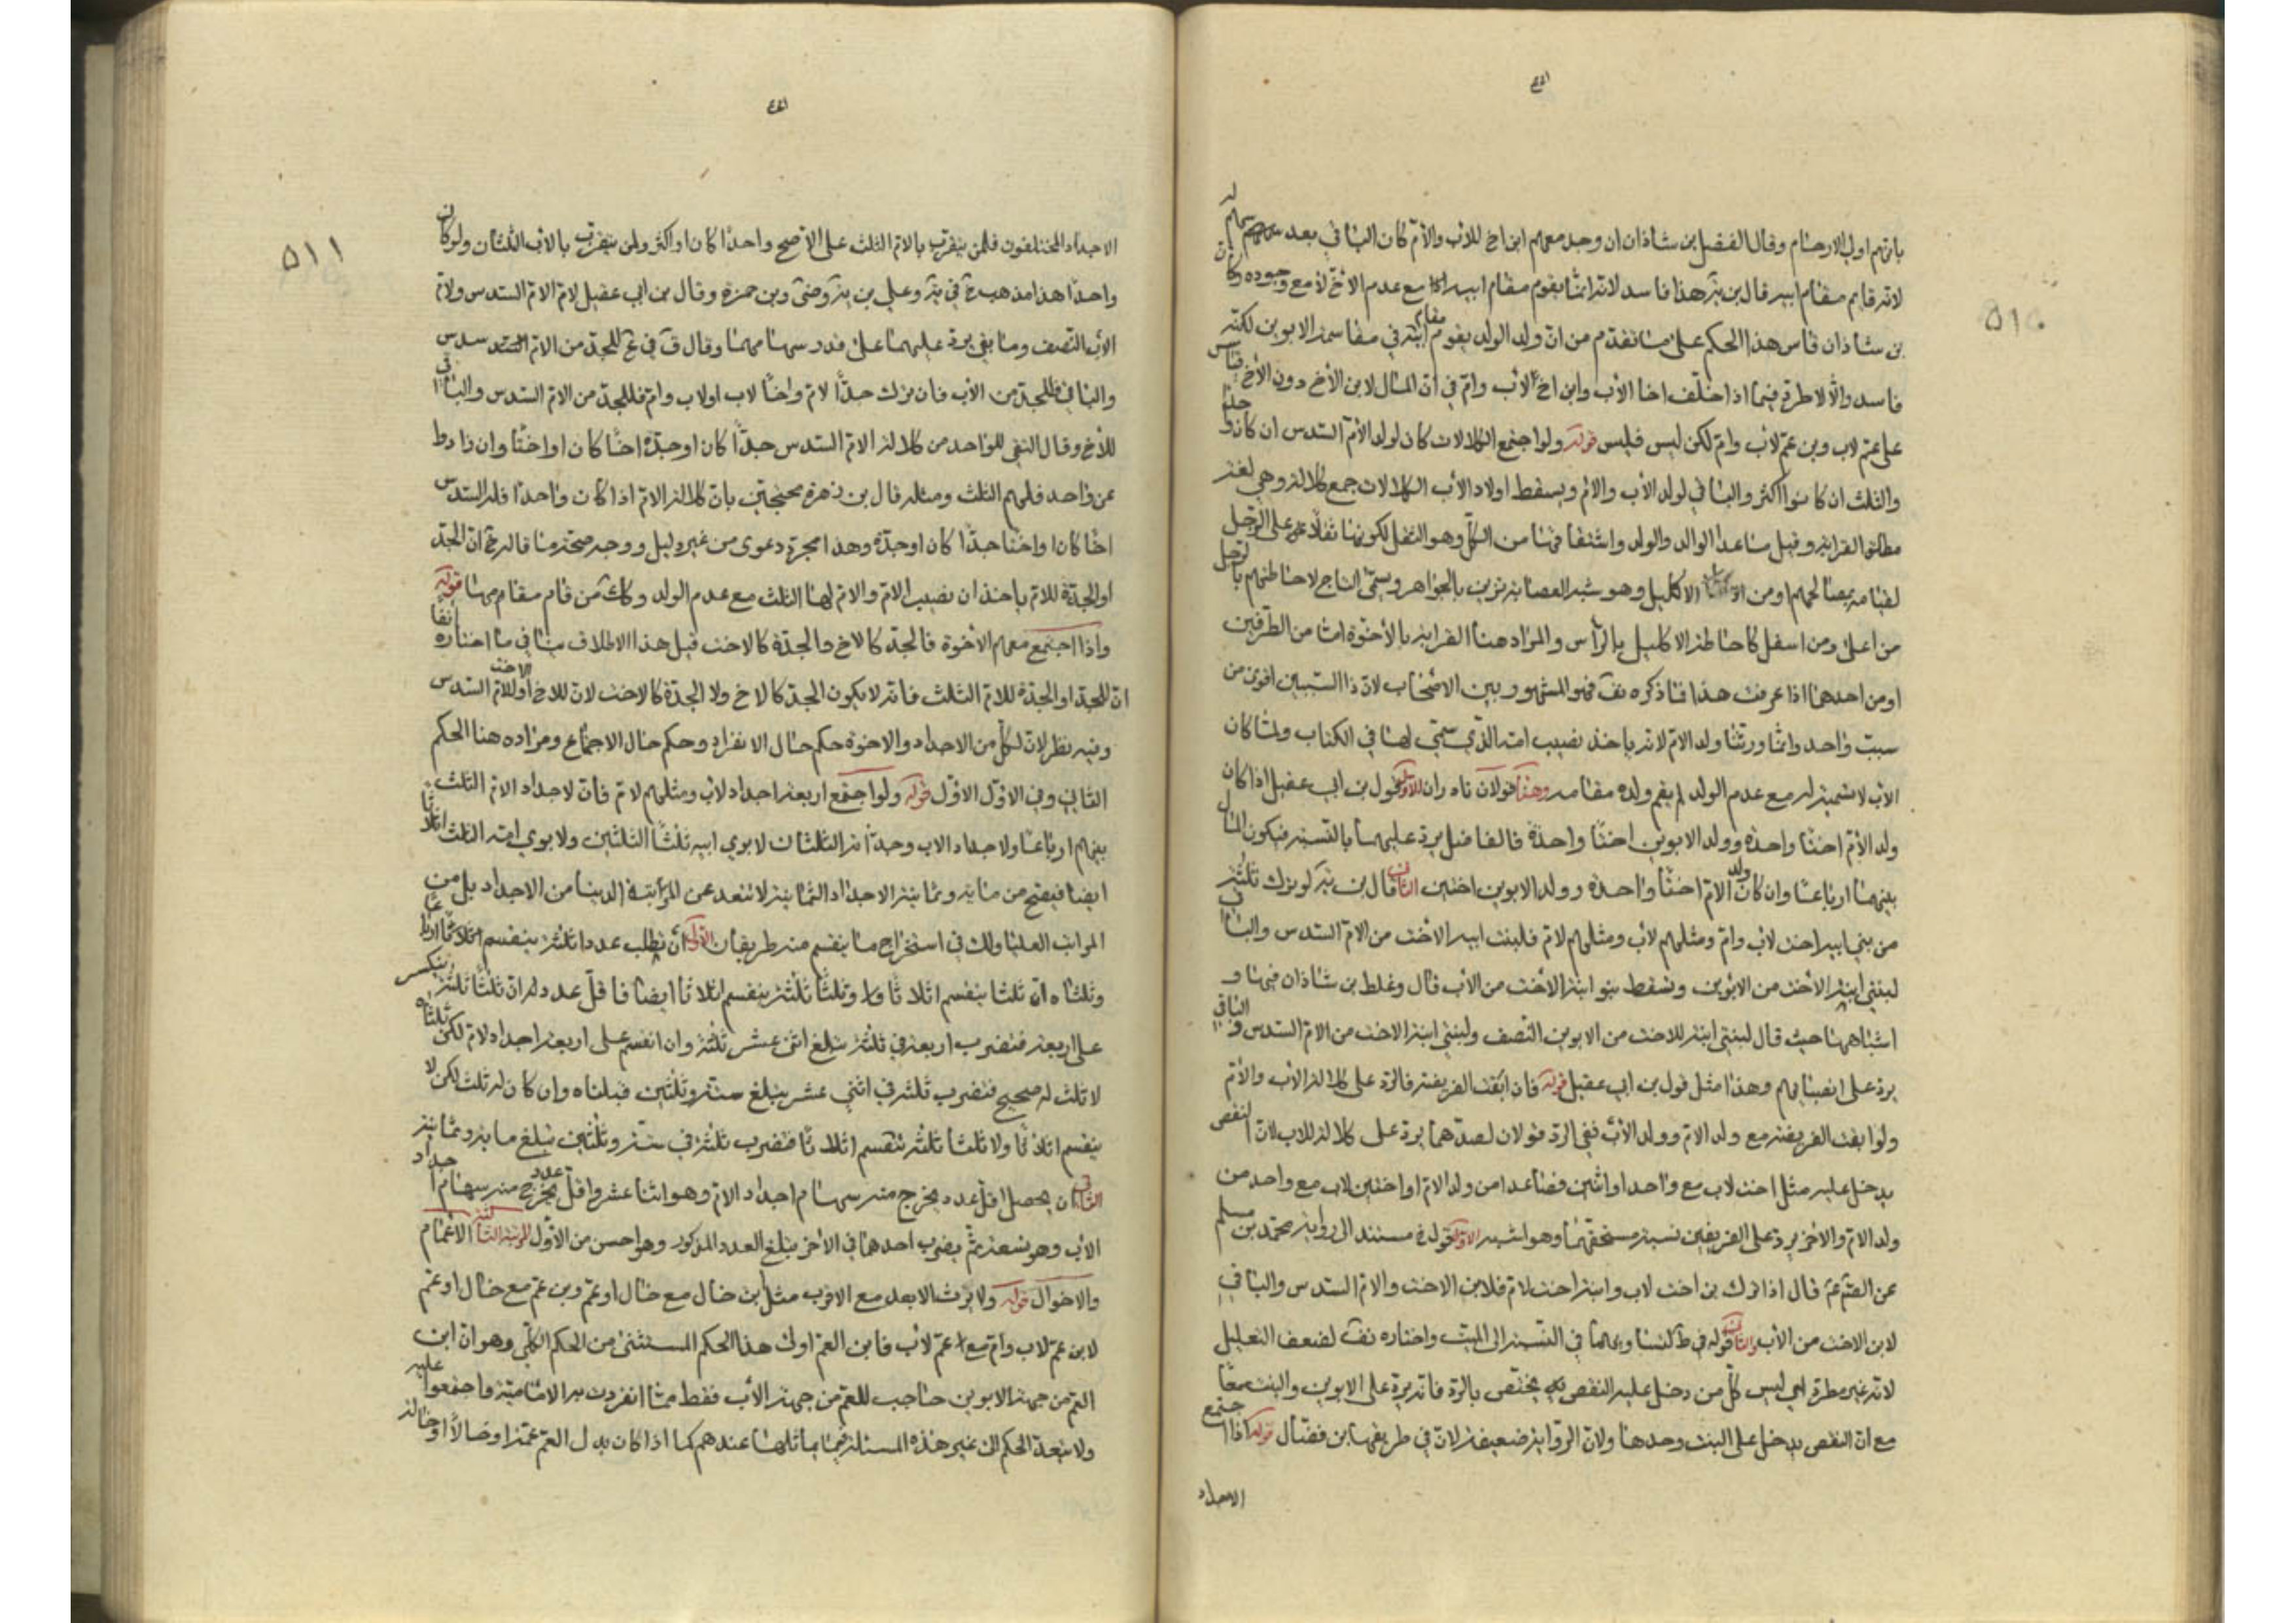 بانهم اولي الارحام وقال الفضل بن شاذان ان وجد معهم ابن اخ للاب والام كان الباقي بعد سهمهم له
لانه قايم مقام ابيه قال بن يه هذا فاسد لانه انما يقوم مقام ابيه اذا مع عدم الاخ لا مع وجوده وكان
بن شاذان قاس هذا الحكم على ما تقدم من ان ولد الولد يقوم مقام ابيه في مقاسمة الابوين لكنه قياس
فاسد والا لاطرد فيما اذا خلف اخا لاب وابن اخ لاب وام في ان المال لابن الاخ دون الاخ
على عم لاب وبن عم لاب وام لكن ليس فليس قوله ولو اجتمع الكلالات كان لولد الام السدس ان كان واحدا
والثلث ان كانوا اكثر والباقي لولد الاب والام ويسقط اولاد الاب الكلالات جمع كلالة وهي لغة
مطلق القرابة وقيل ما عدا الوالد والولد واشتقاقها من الكل وهو الثقل لكونها ثقلا على الرجل
لقيامه بمصالحهم او من الاكليل وهو شبه العصابة تزين بالجواهر ويسمى التاج لاحاطتهم بالرجل
من اعلى ومن اسفل كاحاطة الاكليل بالراس والمراد هنا القرابة بالاخوة اما من الطرفين
او من احدهما اذا عرفت هذا فما ذكره هو المشهور بين الاصحاب لان ذا السببين اقوى من
سبب واحد وانما ورثنا ولد الام لانه ياخذ نصيب امه الذي سمي لها في الكتاب ولما كان
الاب لا تسمية له مع عدم الولد لم يقم ولده مقامه وهنا قولان نادران الاول قول بن ابي عقيل اذا كان
ولد الام اختا واحدة وولد الابوين اختا واحدة فالفاضل يرد عليهما بالنسبة فيكون المال
بينهما ارباعا وان كان ولد الام اختا واحدة وولد الابوين اختين الثاني قال بن يه لو ترك ثلثة
من بني ابيه اخت لاب وام ومثلهم لاب ومثلهم لام فلبنت ابنة الاخت من الام السدس والباقي
لبنتي ابنة الاخت من الابوين وتسقط بنو ابنة الاخت من الاب قال وغلط بن شاذان فيها و
اشباهها حيث قال لبنتي ابنة للاخت من الابوين النصف ولبنتي ابنة الاخت من الام السدس والباقي
يرد على انصبايهم وهذا مثل قول بن ابي عقيل قوله فان ابقت الفريضة فالرد على كلالة الاب والام
ولو ابقت الفريضة مع ولد الام وولد الاب ففي الرد قولان احدهما يرد على كلالة الاب لان النقص
يدخل عليه مثل اخت لاب مع واحد او اثنين فصاعدا من ولد الام او اختين لاب مع واحد من
ولد الام والاخر يرد على الفريقين نسبة مستحقهما وهو اشبه الاول قوله مستند الى رواية محمد بن مسلم
عن قال اذا ترك بن اخت لاب وابن اخت لام فلابن الاخت والام السدس والباقي
لابن الاخت من الاب والثاني قوله في ط لتساويهما في النسبة الى الميت واختاره لضعف التعليل
لانه غير مطرد اي ليس كل من دخل عليه النقص يختص بالرد فانه يرد على الابوين والبنت معا
مع ان النقص يدخل على البنت وحدها ولان الرواية ضعيفة لان في طريقها بن فضال قوله اذا اجتمع
الاجداد
٥١٠
الاجداد المختلفون فلمن يتقرب بالام الثلث على الاصح واحدا كان او اكثر ولمن يتقرب بالاب الثلثان ولو كان
واحدا هذا مذهب خ في يه وعلي بن يه وضى وبن حمزة وقال بن ابي عقيل لام الام السدس ولام
الاب النصف وما بقي يرد عليهما على قدر سهامهما وقال ق في ع للجد من الام السدس
والباقي للجد من الاب فان ترك جدا لام واخا لاب او لاب وام فللجد من الام السدس والباقي
للاخ وقال التقي للواحد من كلالة الام السدس جدا كان او جدة اخا كان او اختا وان زاد وا
عن واحد فلهم الثلث ومثله قال بن زهرة محتجين بان كلالة الام اذا كان واحدا فله السدس
اخا كان او اختا جدا كان او جدة وهذا مجرد دعوى من غير دليل ووجه صحة ما قاله خ ان الجد
او الجدة للام ياخذان نصيب الام والام لها الثلث مع عدم الولد وكذا من قام مقامها قوله
واذا اجتمع معهم الاخوة فالجد كالاخ والجدة كالاخت قيل هذا الاطلاق ينافي ما اختاره انفا
ان للجد او الجدة للام الثلث فانه لا يكون الجد كالاخ ولا الجدة كالاخت لان للاخ او الاخت للام السدس
وفيه نظر لان لكل من الاجداد والاخوة حكم حال الانفراد وحكم حال الاجتماع ومراده هنا الحكم
الثاني وفي الاول الاول قوله ولو اجتمع اربعة اجداد لاب ومثلهم لام فان لاجداد الام الثلث
بينهم ارباعا ولاجداد الاب وجداته الثلثان لابوي ابيه ثلثا الثلثين ولابوي امه الثلث اثلاثا
ايضا فيصح من مائة وثمانية الاجداد الثمانية لا تتعد عن المرتبة الدنيا من الاجداد بل من
المراتب العليا ولك في استخراج ما ينقسم منه طريقان الاول ان تطلب عددا ثلثه ينقسم ارباعا
وثلثاه ان ثلثا ينقسم اثلاثا وا وثلثا ثلثه ينقسم اثلاثا ايضا فاقل عدد له ان ثلثا ثلثة ينكسر
على اربعة فتضرب اربعة في ثلثة تبلغ اثنى عشر ثلثه وان انقسم على اربعة اجداد لام لكن ثلثاه
لا ثلث له صحيح فتضرب ثلثة في اثني عشر يبلغ ستة وثلثين فثلثاه وان كان له ثلث لكن لا
ينقسم اثلاثا ولا ثلثا ثلثه تنقسم اثلاثا فتضرب ثلثة في ستة وثلثين تبلغ ماية وثمانية
الثاني ان يحصل اقل عدد يخرج منه سهام اجداد الام وهو اثنا عشر واقل عدد يخرج منه سهام اجداد
الاب وهو تسعة ثم يضرب احدهما في الاخر يبلغ العدد المذكور وهو احسن من الاول المرتبة الثالثة الاعمام
والاخوال قوله ولا يرث الابعد مع الاقرب مثل ابن خال مع خال او عم وبن عم مع خال او عم
لابن عم لاب وام مع عم لاب فابن العم اولى هذا الحكم المستثنى من الحكم الكلي وهو ان ابن
العم من جهة الابوين حاجب للعم من جهة الاب فقط مما انفردت به الامامية واجمعوا عليه
ولا يتعد الحكم الى غير هذه المسئلة مما يماثلها عندهم كما اذا كان بدل العم عمة او خالا او خالة
٥١١